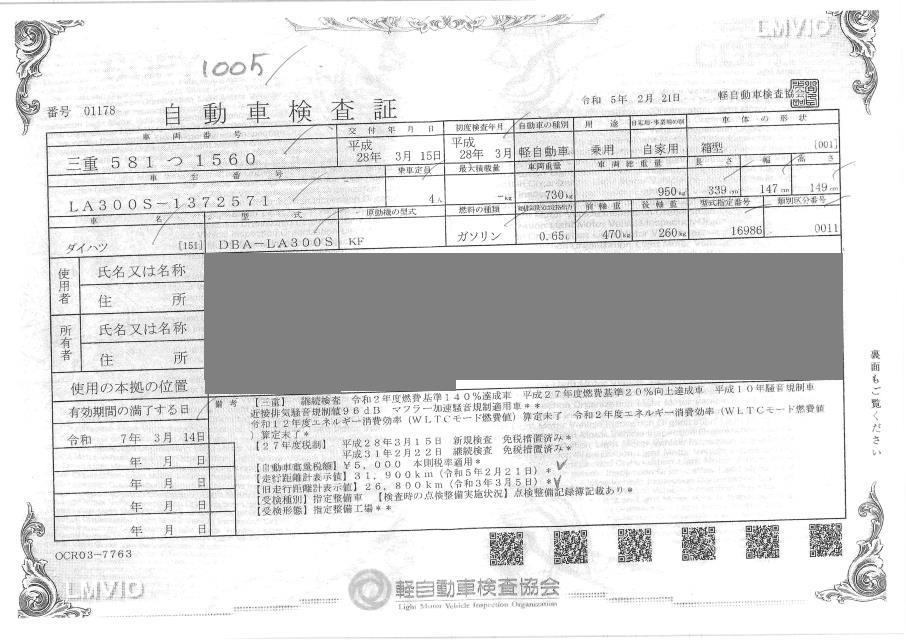 LMVIO
1005
令和 5年 2月 21日 軽自動車検査協会
番号 01178 自動車検査証
車両番号 交付年月日 初度検査年月 自動車の種別 用途 自家用・事業用の別 車体の形状
三重 581 つ 1560 平成 28年 3月 15日 平成 28年 3月 軽自動車 乗用 自家用 箱型 [001]
車台番号 乗車定員 最大積載量 車両重量 車両総重量 長さ 幅 高さ
LA300S-1372571 4人 -kg 730kg 950kg 339cm 147cm 149cm
車名 型式 原動機の型式 燃料の種類 前軸重 後軸重 型式指定番号 類別区分番号
ダイハツ [151] DBA-LA300S KF ガソリン 0.65L 470kg 260kg 16986 0011
使用者 氏名又は名称
住所
所有者 氏名又は名称
住所
使用の本拠の位置
有効期間の満了する日
令和 7年 3月 14日
年 月 日
年 月 日
年 月 日
年 月 日
備考
【三重】 継続検査 令和2年度燃費基準140%達成車 平成27年度燃費基準20%向上達成車 平成10年騒音規制車
近接排気騒音規制値96dB マフラー加速騒音規制適用車**
令和12年度エネルギー消費効率(WLTCモード燃費値)算定未了 令和2年度エネルギー消費効率(WLTCモード燃費値
)算定未了*
【27年度税制】 平成28年3月15日 新規検査 免税措置済み*
平成31年2月22日 継続検査 免税措置済み*
【自動車重量税額】¥5,000 本則税率適用*
【走行距離計表示値】31,900km(令和5年2月21日)*
【旧走行距離計表示値】26,800km(令和3年3月5日)*
【受検種別】指定整備車 【検査時の点検整備実施状況】点検整備記録簿記載あり*
【受検形態】指定整備工場**
裏面もご覧ください
OCR03-7763
LMVIO
軽自動車検査協会
Light Motor Vehicle Inspection Organization